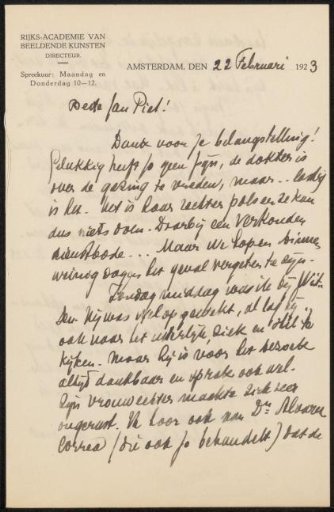 RIJKS-ACADEMIE VAN
BEELDENDE KUNSTEN
DIRECTEUR.
Spreekuur: Maandag en
Donderdag 10—12.
AMSTERDAM, DEN 22 Februari 1923
Beste Jan Piet!
Dank voor je belangstelling!
Gelukkig heeft ze geen pijn, de dokter is
over de genezing te vreden, maar... lastig
is het. Het is haar rechter pols en ze kan
dus niets doen. Daarbij een verkouden
dienstbode... Maar we hopen binnen
weinig dagen het geval vergeten te zijn.
Zondag middag was ik bij Wit-
sen. Hij was wel op gewekt, al lag hij
ook naar het uiterlijk, ziek en stil te
kijken. Maar hij is voor het bezoek
altijd dankbaar en sprak ook wel.
Zijn vrouw echter maakte zich zeer
ongerust. Ik hoor ook van Dr. Alvares
Correa (die ook Jo behandelt) dat de